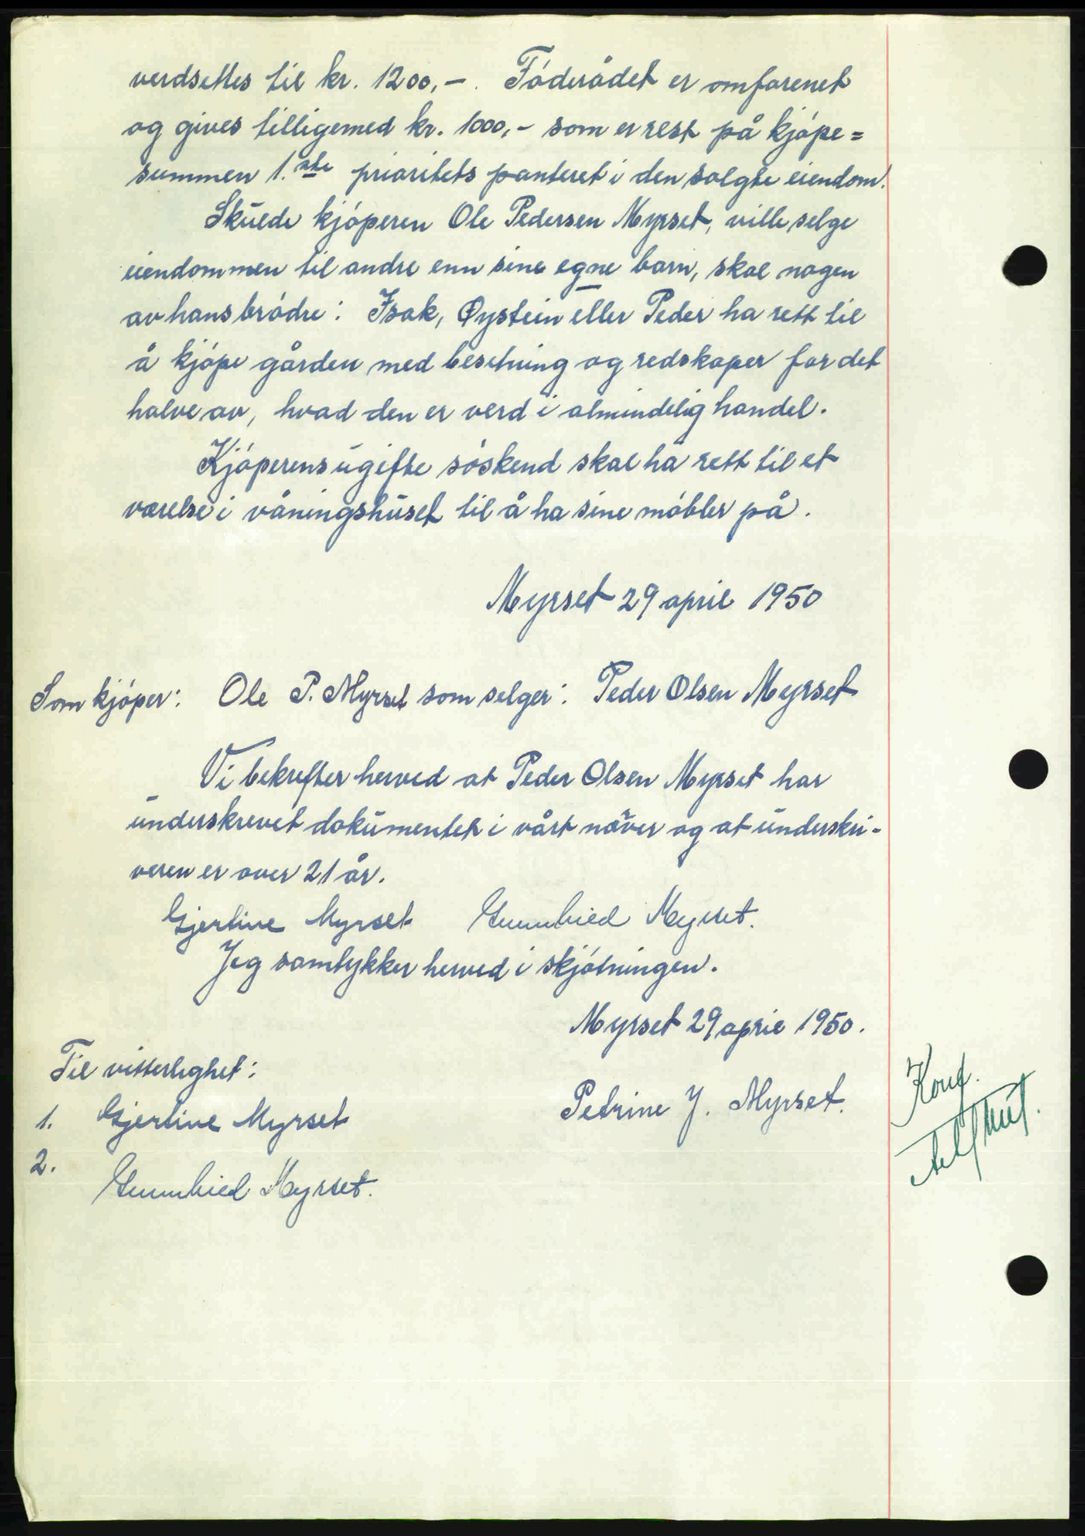 verdsettes til kr. 1200,-. Föderådet er omforenet
og gives tilligemed kr. 1000,- som er rest på kjöpe=
summen 1.ste prioritets panterett i den solgte eiendom.
Skulde kjöperen Ole Pedersen Myrset, ville selge
eiendommen til andre enn sine egne barn, skal nogen
av hans brödre: Isak, Øystein eller Peder ha rett til
å kjöpe gården med besetning og redskaper for det
halve av, hvad den er verd i almindelig handel.
Kjöperens ugifte söskend skal ha rett til et
værelse i våningshuset til å ha sine möbler på.
Myrset 29 april 1950
Som kjöper: Ole P. Myrset som selger: Peder Olsen Myrset
Vi bekrefter herved at Peder Olsen Myrset har
underskrevet dokumentet i vårt nærvær og at underskri-
veren er over 21 år.
Gjertine Myrset Gunnhild Myrset.
Jeg samtykker herved i skjötningen.
Myrset 29 april 1950.
Til vitterlighet:
Petrine J. Myrset.
1. Gjertine Myrset
2. Gunnhild Myrset.
Konf.